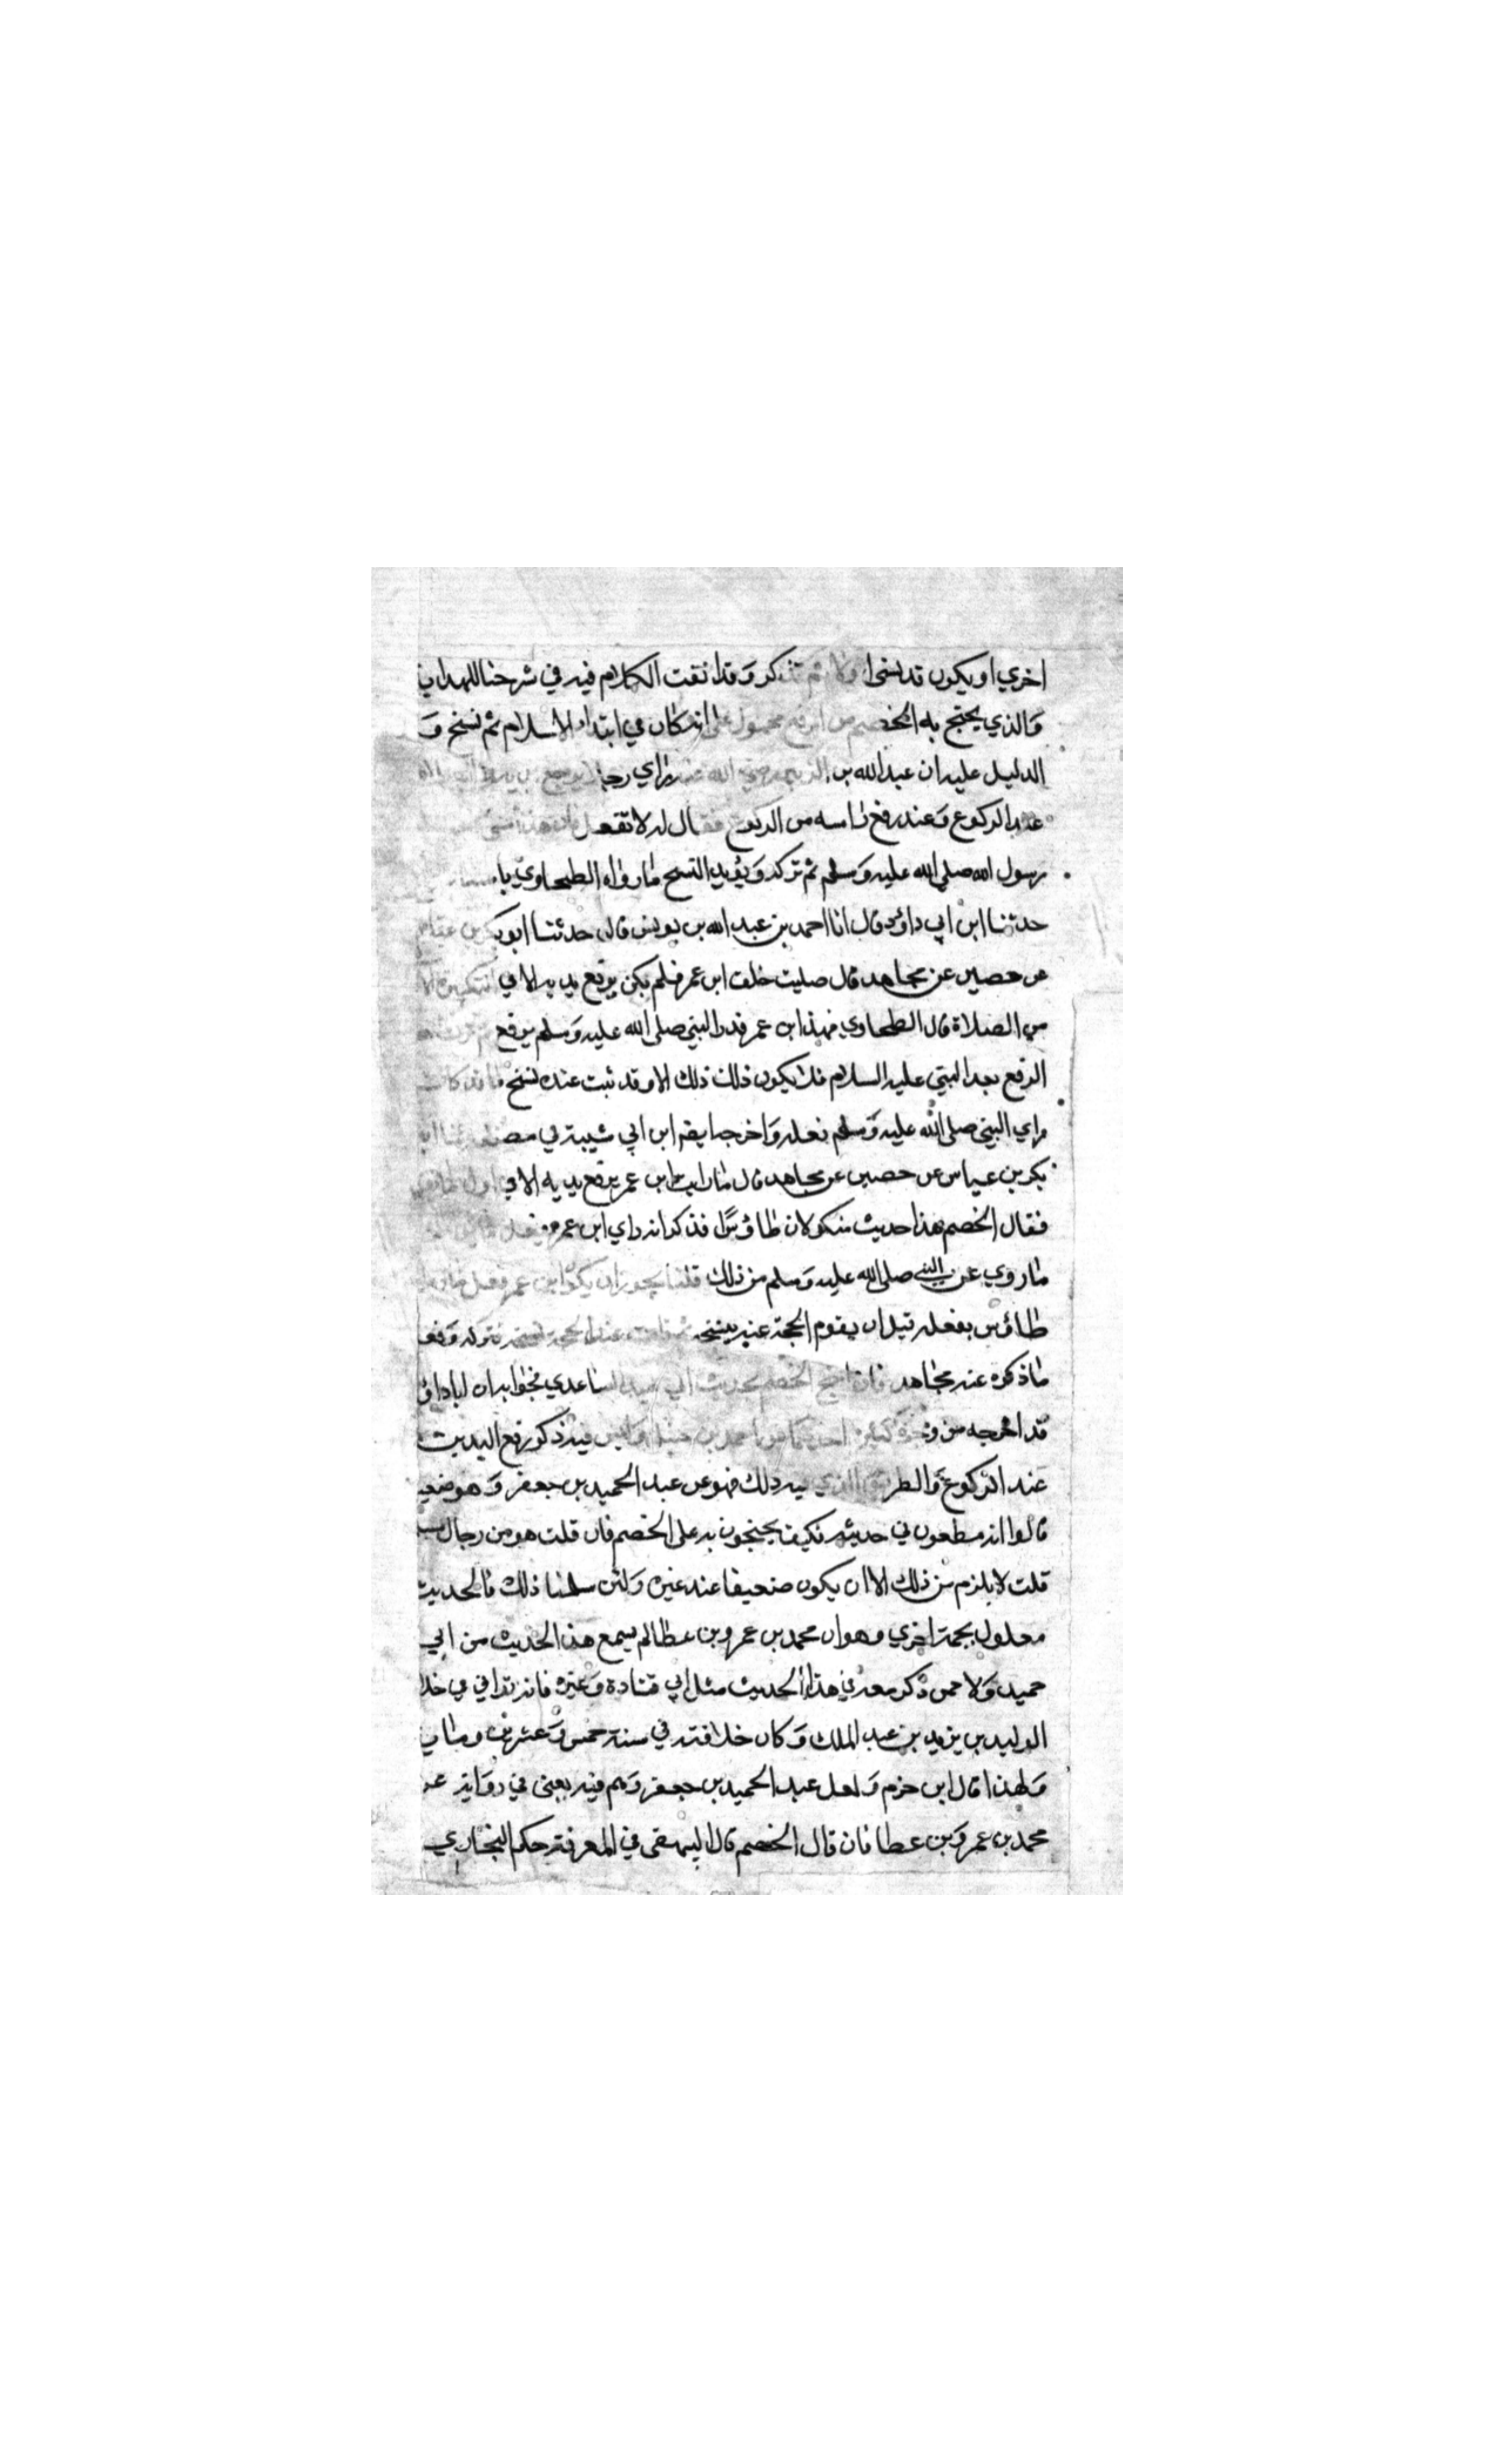 اخري او يكون قد نسي اولا ثم تذكر وقد انقت الكلام فيه في شرحنا للهداية
والذي يحتج به الخصم من الرفع محمول على انه كان في ابتداء الاسلام ثم نسخ و
الدليل عليه ان عبد الله بن الزبير رضي الله عنه راي رجلا يرفع يديه
عند الركوع وعند رفع راسه من الركوع فقال له لا تفعل فان هذا شي
رسول الله صلى الله عليه وسلم ثم تركه ويؤيد النسخ ما رواه الطحاوي با
حدثنا ابن ابي داؤد قال انا احمد بن عبد الله بن يونس قال حدثنا ابو بكر بن عياش
عن حصين عن مجاهد قال صليت خلف ابن عمر فلم يكن يرفع يديه الا في التكبيرة الا
من الصلاة قال الطحاوي فهذا ابن عمر قد را النبي صلى الله عليه وسلم يرفع
الرفع بعد النبي عليه السلام فلا يكون ذلك ذلك الا وقد ثبت عنده نسخ ما قد كان
راي النبي صلى الله عليه وسلم فعله واخرجه ايضا ابن ابي شيبة في مصنفه
بكر بن عياش عن حصين عن مجاهد قال ما رايت ابن عمر يرفع يديه الا في اول ما
فقال الخصم هذا حديث منكر لان طاؤسا قد ذكر انه راي ابن عمر يفعل
ما روي عن النبي صلى الله عليه وسلم من ذلك قلنا يجوز ان يكون ابن عمر فعل ما
طاؤس بفعله قبل ان يقوم الحجة عنده بنسخه ثم قامت عنده الحجة بنسخه فتركه وفعل
ما ذكره عنه مجاهد فان احتج الخصم بحديث ابي حميد الساعدي فجوابه ان ابا داؤد
قد اخرجه من وجوه كثيرة احدها عن احمد بن حنبل وليس فيه ذكر رفع اليدين
عند الركوع والطريق الذي فيه ذلك فهو عن عبد الحميد بن جعفر وهو ضعيف
قالوا انه مطعون في حديثه فكيف يحتجون به على الخصم فان قلت هو من رجال
قلت لا يلزم من ذلك الا ان يكون ضعيفا عند غيره ولئن سلمنا ذلك فالحديث
معلول بجهة اخري وهو ان محمد بن عمرو بن عطا لم يسمع هذا الحديث من ابي
حميد ولا ممن ذكر معه في هذا الحديث مثل ابي قتادة وغيره فانه توافي في خلا
الوليد بن يزيد بن عبد الملك وكان خلافته في سنة خمس وعشرين وماية
ولهذا قال ابن حزم ولعل عبد الحميد بن جعفر وهم فيه يعني في روايته عن
محمد بن عمرو بن عطا فان قال الخصم قال البيهقي في المعرفة حكم البخاري